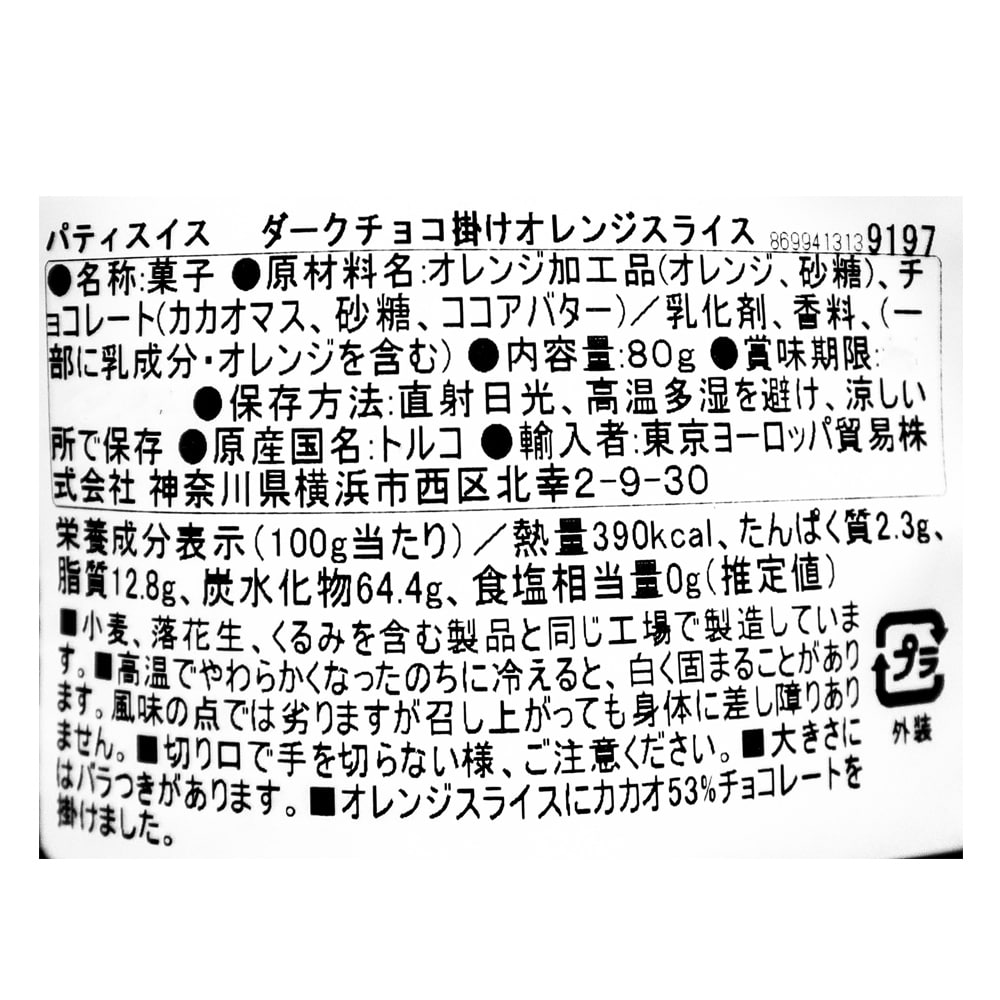 パティスイス　ダークチョコ掛けオレンジスライス 869941313 9197
●名称:菓子 ●原材料名:オレンジ加工品(オレンジ、砂糖)、チ
ョコレート(カカオマス、砂糖、ココアバター)／乳化剤、香料、(一
部に乳成分・オレンジを含む) ●内容量:80g ●賞味期限:
●保存方法:直射日光、高温多湿を避け、涼しい
所で保存 ●原産国名:トルコ ●輸入者:東京ヨーロッパ貿易株
式会社 神奈川県横浜市西区北幸2-9-30
栄養成分表示(100g当たり)／熱量390kcal、たんぱく質2.3g、
脂質12.8g、炭水化物64.4g、食塩相当量0g(推定値)
■小麦、落花生、くるみを含む製品と同じ工場で製造していま
す。■高温でやわらかくなったのちに冷えると、白く固まることがあり
ます。風味の点では劣りますが召し上がっても身体に差し障りあり
ません。■切り口で手を切らない様、ご注意ください。■大きさに
はバラつきがあります。■オレンジスライスにカカオ53%チョコレートを
掛けました。
プラ
外装